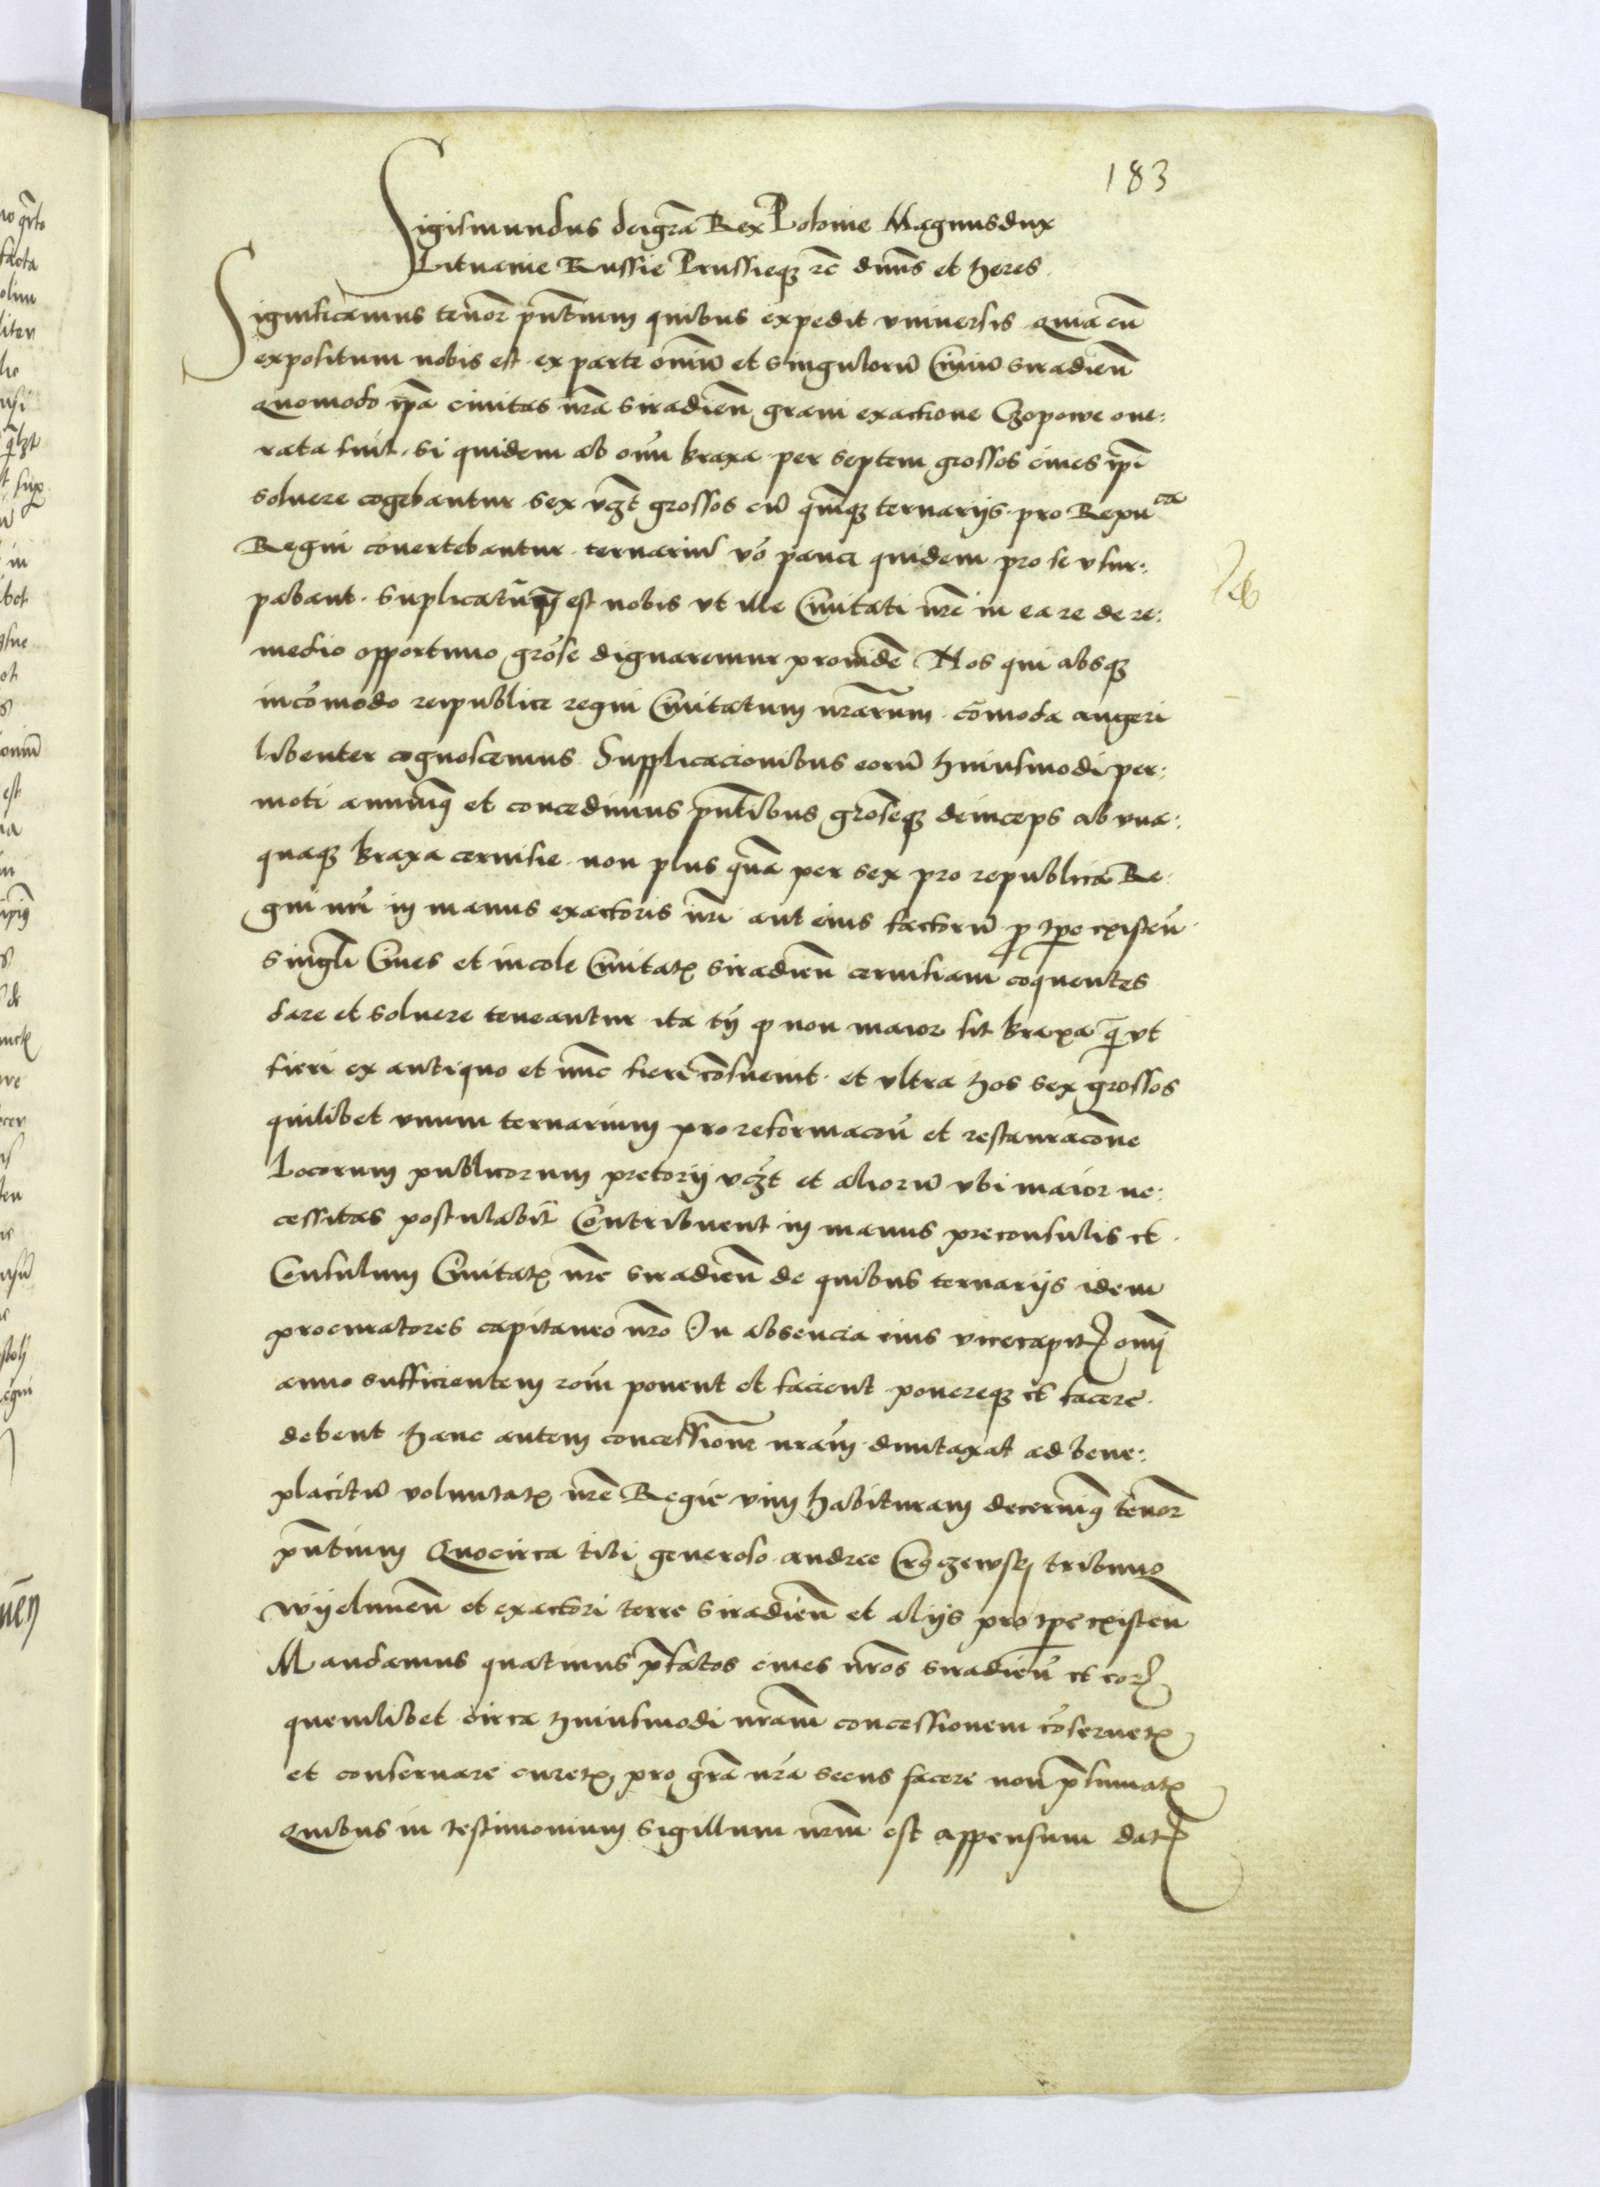 183
Sigismundus dei gr̃a Rex Polonie Magnus dux
Lituanie Russie Prussieqȝ zc̃ dñns et heres
Significamus tenor̃ pñtium quibus expedit vniuersis quia cũ
expositum nobis est ex parte oĩm et singulorũ Ciuiũ siradieñ
quomodo ip̃a ciuitas nr̃a siradieñ graui exactione Czopowe one:
rata fuit. si quidem ab oĩm braxa per septem grossos ciues ip̃i
soluere cogebantur sex vcȝt grossos cũ quinqȝ ternarijs pro Repuca
Regni cõuertebantur ternariũ võ pauci quidem pro se vsur:
pabant. suplicatũ est nobis vt ille Ciuitati nr̃e in ea re de re:
medio opportuno gr̃ose dignaremur prouidẽ Nos qui absqȝ
incõmodo reipublice regni Ciuitatum nr̃arum cõmoda augeri
libenter cognoscimus Supplicacionibus eorũ huiusmodi per:
moti annuimꝯ et concedimus pñtibus gr̃oseqȝ deinceps ab vna:
quaqȝ braxa ceruisie non plus quã per sex pro republica Re:
gni nr̃i in manus exactoris nr̃i aut eius factorũ ꝓ tp̃e existeñ
singl̃i Ciues et incole Ciuitatꝭ siradieñ ceruisiam coquentes
dare et soluere teneantur ita tñ ꝙ non maior sit braxa q̃ vt
fieri ex antiquo et nũc fieri cõsueuit. et vltra hos sex grossos
quilibet vnum ternarium pro reformacoñ et restauracõne
Locorum publicorum pretorij vcȝt et aliorũ vbi maior ne:
cessitas postulabit Contribuent in manus preconsulis et
Consulum Ciuitatꝭ nr̃e siradieñ de quibus ternarijs idem
procuratores capitaneo nr̃o In absencia eius vicecapitꝭ omñ
anno sufficientem roẽm ponent et facient ponereqȝ et facere
debent hanc autem concessionẽ nr̃am duntaxat ad bene:
placitũ voluntatꝭ nr̃e Regie vim habituram decernimꝯ tenor̃
pñtium Quocirca tibi generoso andree tribuno
wijeluneñ et exactori terre siradieñ et alijs pro tp̃e existeñ
Mandamus quatinus p̃fatos ciues nr̃os siradieñ et eorꝭ
quemlibet circa huiusmodi nr̃am concessionem cõseruetꝭ
et conseruare curetꝭ pro gr̃a nr̃a secus facere non p̃sumatꝭ
Quibus in testimonium sigillum nr̃m est appensum datꝭ